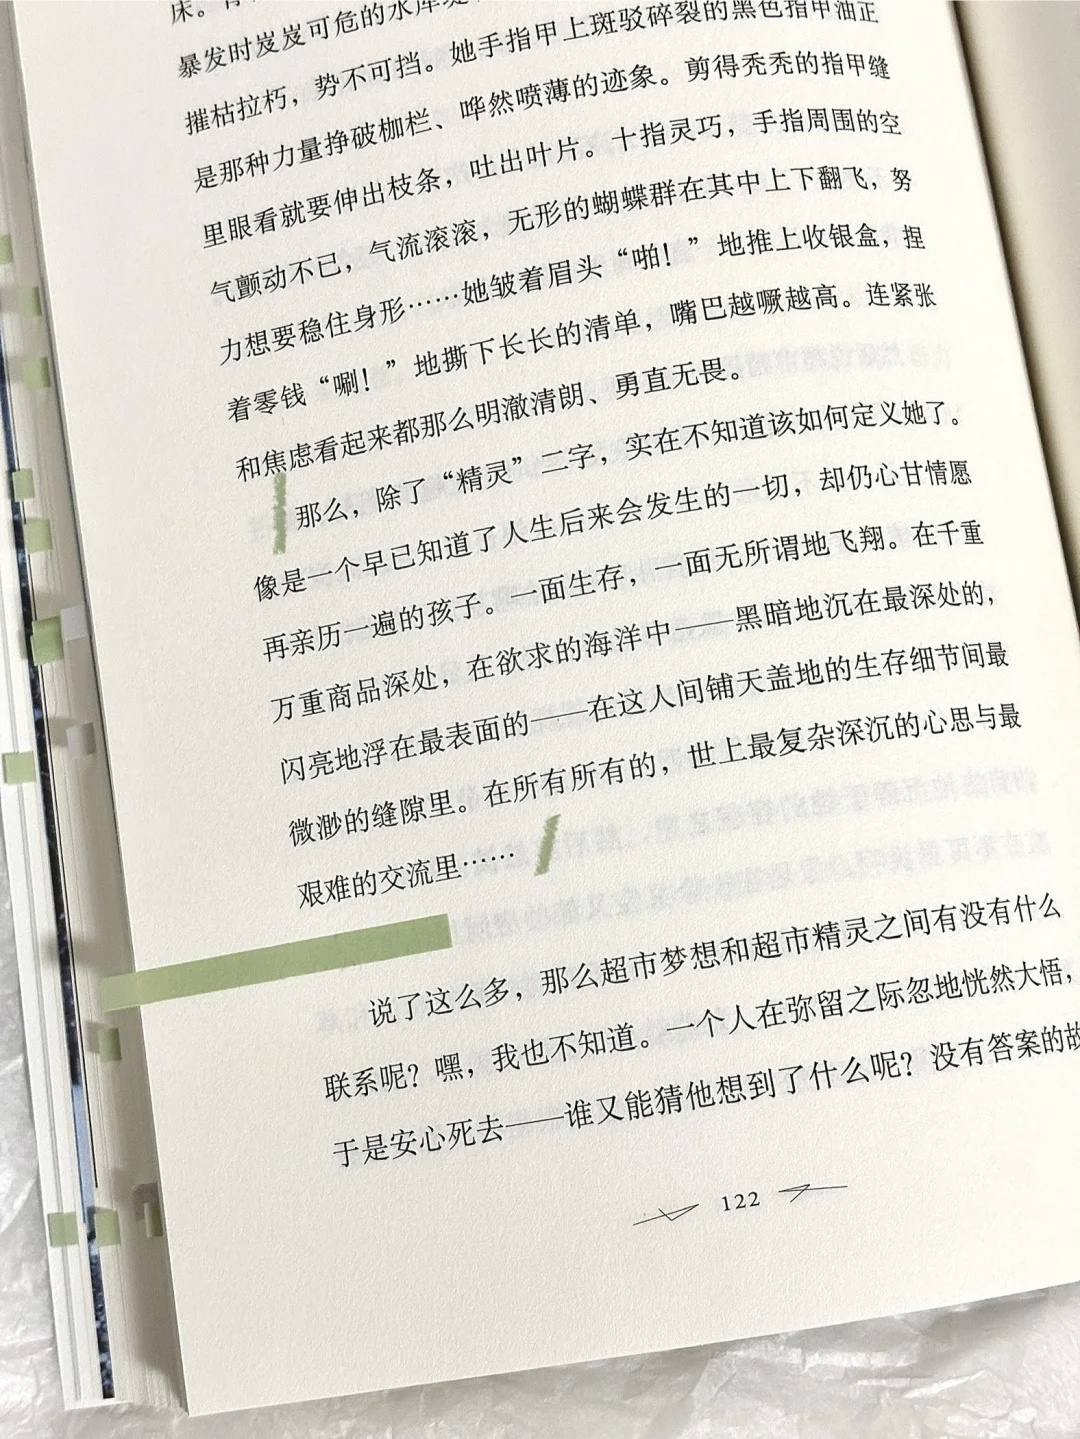 床。
暴发时岌岌可危的水库
摧枯拉朽，势不可挡。她手指甲上斑驳碎裂的黑色指甲油正
是那种力量挣破枷栏、哗然喷薄的迹象。剪得秃秃的指甲缝
里眼看就要伸出枝条，吐出叶片。十指灵巧，手指周围的空
气颤动不已，气流滚滚，无形的蝴蝶群在其中上下翻飞，努
力想要稳住身形……她皱着眉头“啪！”地推上收银盒，捏
着零钱“唰！”地撕下长长的清单，嘴巴越噘越高。连紧张
和焦虑看起来都那么明澈清朗、勇直无畏。
那么，除了“精灵”二字，实在不知道该如何定义她了。
像是一个早已知道了人生后来会发生的一切，却仍心甘情愿
再亲历一遍的孩子。一面生存，一面无所谓地飞翔。在千重
万重商品深处，在欲求的海洋中——黑暗地沉在最深处的，
闪亮地浮在最表面的——在这人间铺天盖地的生存细节间最
微渺的缝隙里。在所有所有的，世上最复杂深沉的心思与最
艰难的交流里……
说了这么多，那么超市梦想和超市精灵之间有没有什么
联系呢？嘿，我也不知道。一个人在弥留之际忽地恍然大悟，
于是安心死去——谁又能猜他想到了什么呢？没有答案的故
122